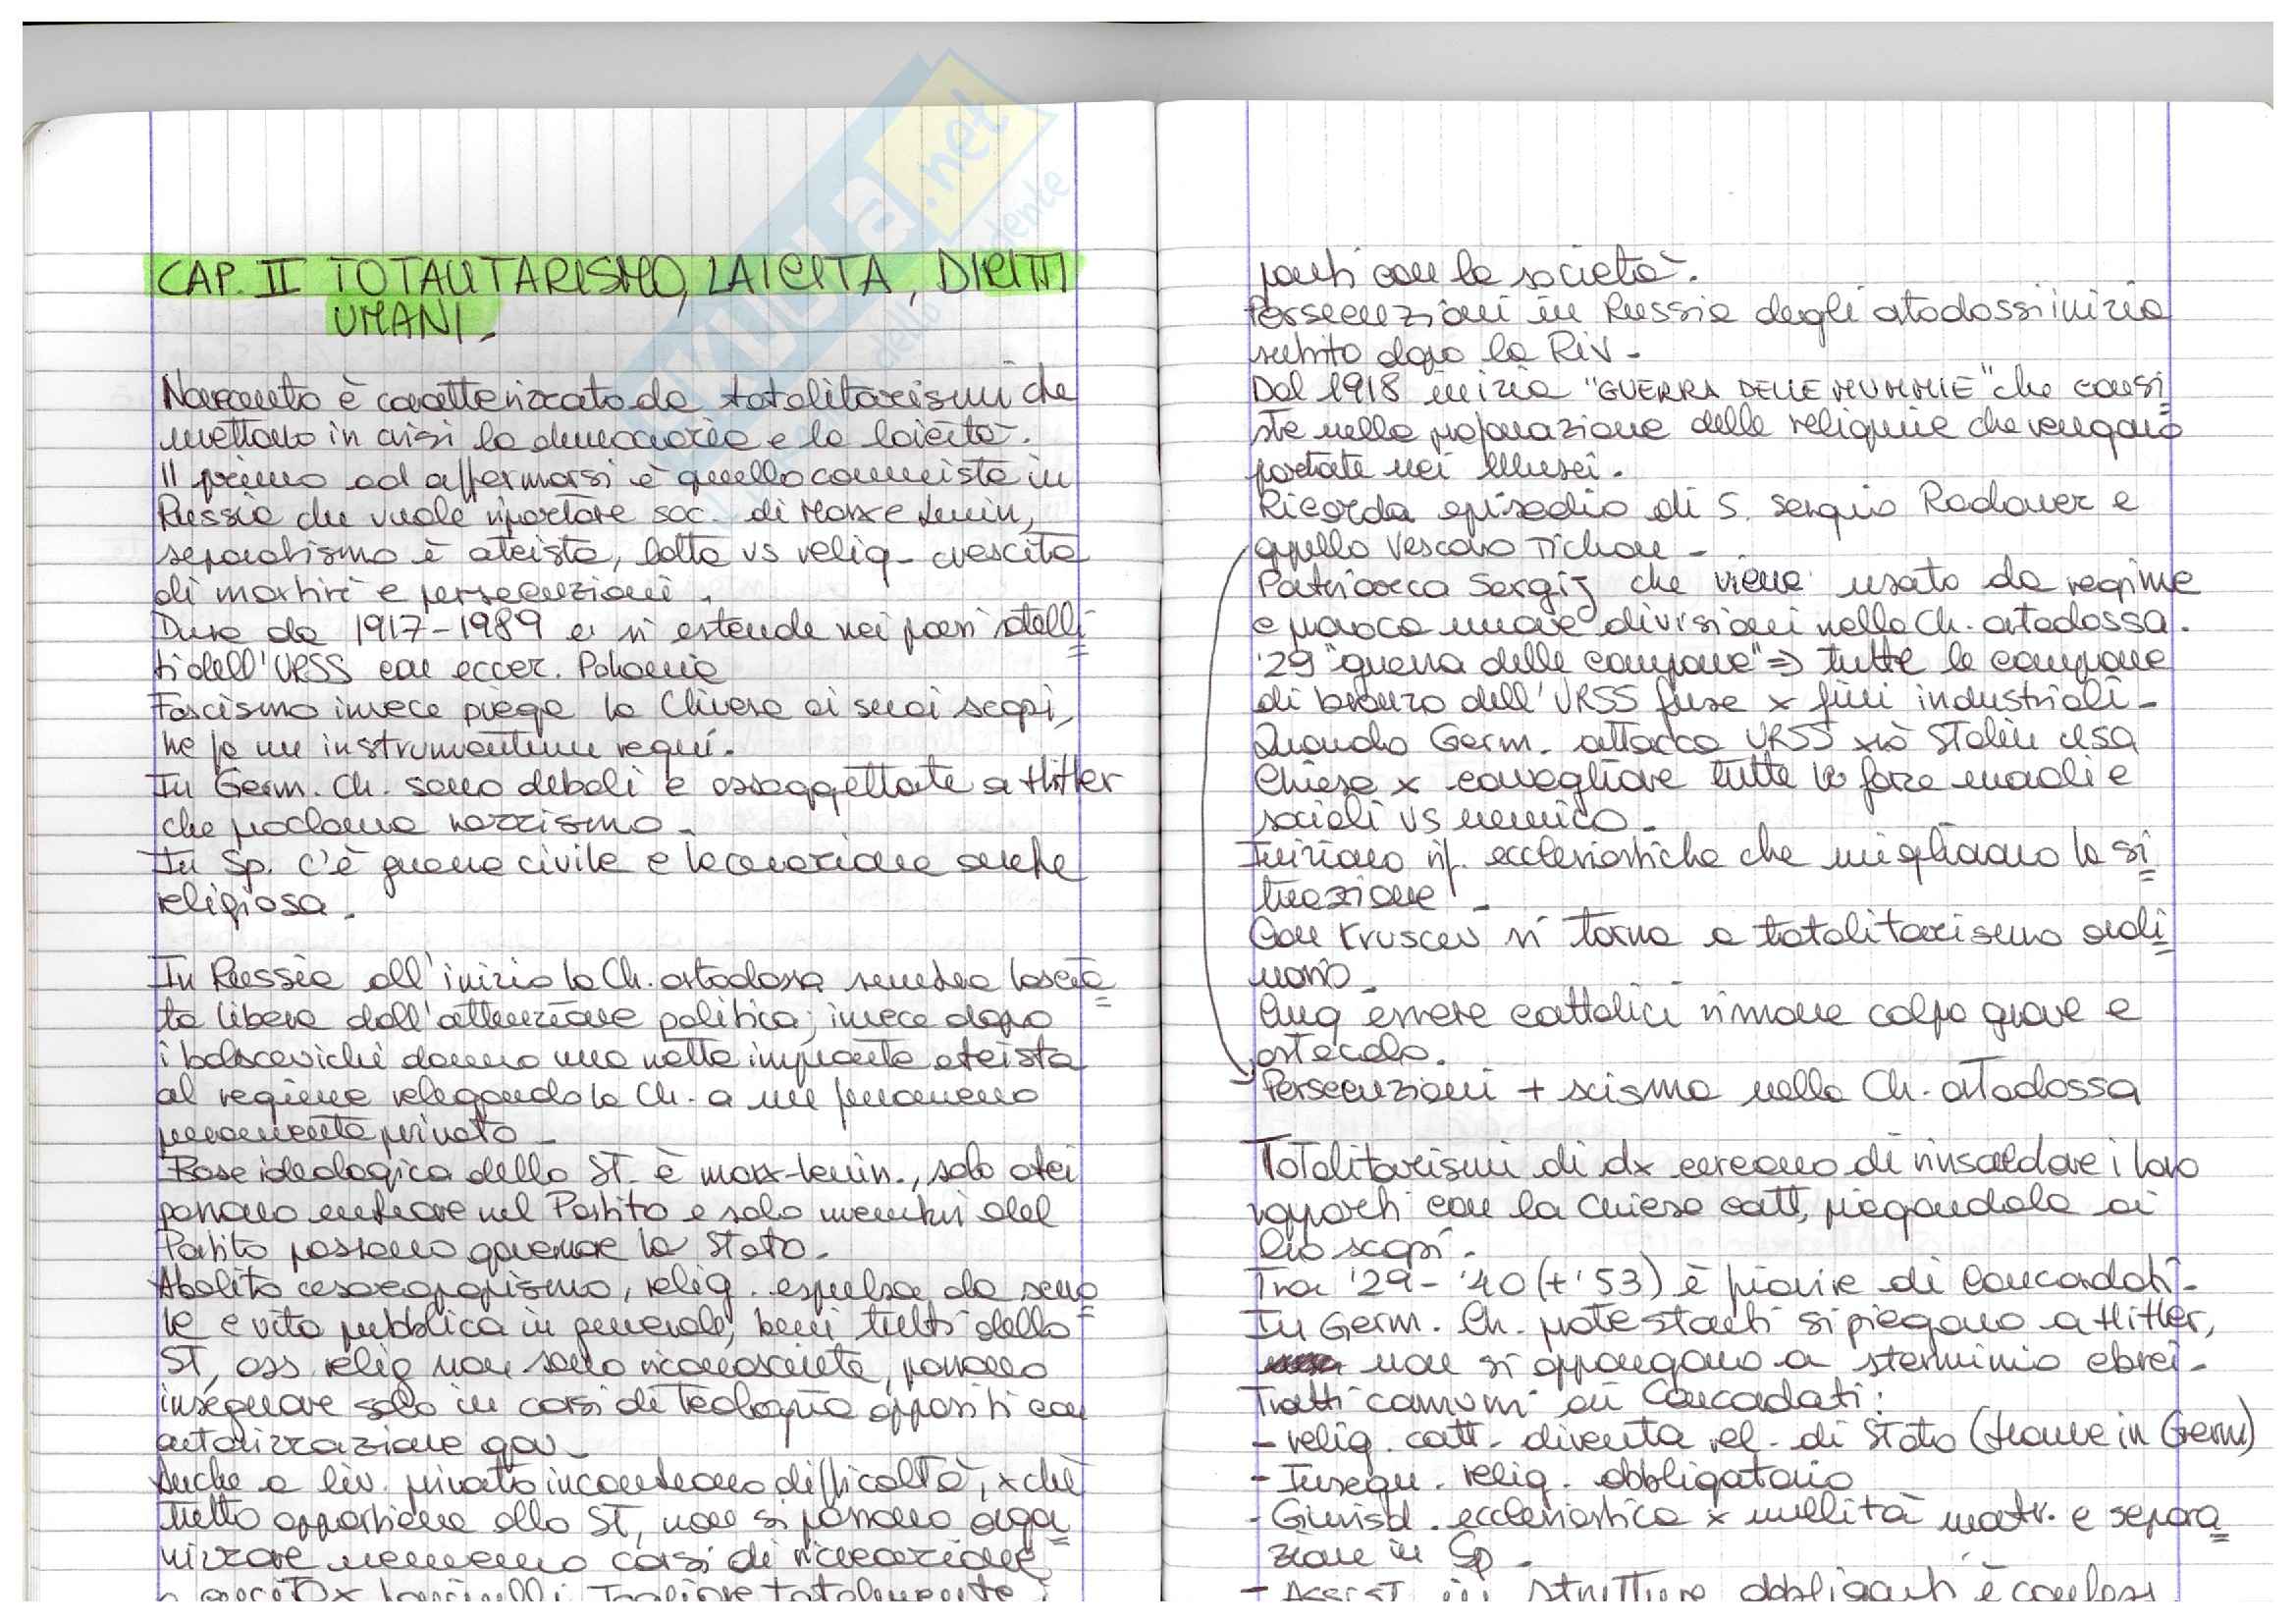 CAP. II TOTALITARISMO, LAICITA, DIRITTI
UMANI.
Novecento è caratterizzato da totalitarismi che
mettono in crisi la democrazia e la laicità.
Il primo ad affermarsi è quello comunista in
Russia che vuole riportare soc. di Marx e Lenin,
separatismo è ateista, lotta vs relig- crescita
di martiri e persecuzioni.
Dura da 1917-1989 e si estende nei paesi satelli
ti dell'URSS con eccez. Polonia
Fascismo invece piega la Chiesa ai suoi scopi,
ne fa un instrumentum regni.
In Germ. Ch. sono deboli e assoggettate a Hitler
che proclama nazzismo.
In Sp. c'è guerra civile e lacerazione anche
religiosa.
In Russia all'inizio la Ch. ortodossa sembra lascia
ta libera dall'attenzione politica; invece dopo
i bolscevichi danno una netta impronta ateista
al regime relegando la Ch. a un fenomeno
puramente privato.
Base ideologica dello ST. è marx-lenin., solo atei
possono entrare nel Partito e solo membri del
Partito possono governare lo Stato.
Abolito cesaropapismo, relig. espulsa da scuo
le e vita pubblica in generale, beni tutti dello
ST, ass relig non sono riconosciute, possono
insegnare solo in corsi di Teologia appositi con
autorizzazione gov.
Anche a liv. privato incontrano difficoltà, xchè
tutto appartiene allo ST, non si possono orga
nizzare nemmeno corsi di ricreazione
x fanciulli. Togliere totalmente i
porti con la società.
Persecuzioni in Russia degli ortodossi inizia
subito dopo la Riv.
Dal 1918 inizia "GUERRA DELLE MUMMIE" che consi
ste nella profanazione delle reliquie che vengono
portate nei Musei.
Ricorda episodio di S. Sergio Radonez e
quello Vescovo Tichon -
Patriarca Sergij che viene usato da regime
e provoca nuove divisioni nella Ch. ortodossa.
'29 "guerra delle campane" => tutte le campane
di bronzo dell'URSS fuse x fini industriali-
Quando Germ. attacca URSS xiò Stalin usa
Chiesa x convogliare tutte le forze morali e
sociali vs nemico.
Iniziano rif. ecclesiastiche che migliorano la si
tuazione.
Con Kruscev si torna a totalitarismo ordi
nario.
Cmq essere cattolici rimane colpa grave e
ostacolo.
Persecuzioni + scisma nella Ch. ortodossa
Totalitarismi di dx cercano di rinsaldare i loro
rapporti con la Chiesa catt, piegandola ai
loro scopi.
Tra '29-'40 (+'53) è fiorire di Concordati.
In Germ. Ch. protestanti si piegano a Hitler,
non si oppongono a sterminio ebrei.
Tratti comuni ai Concordati:
- relig. catt. diventa rel. di Stato (tranne in Germ)
- Insegn. relig. obbligatorio
- Giurisd. ecclesiastica x nullità matr. e separa
zione in Sp.
- Assist in strutture obbliganti è confess